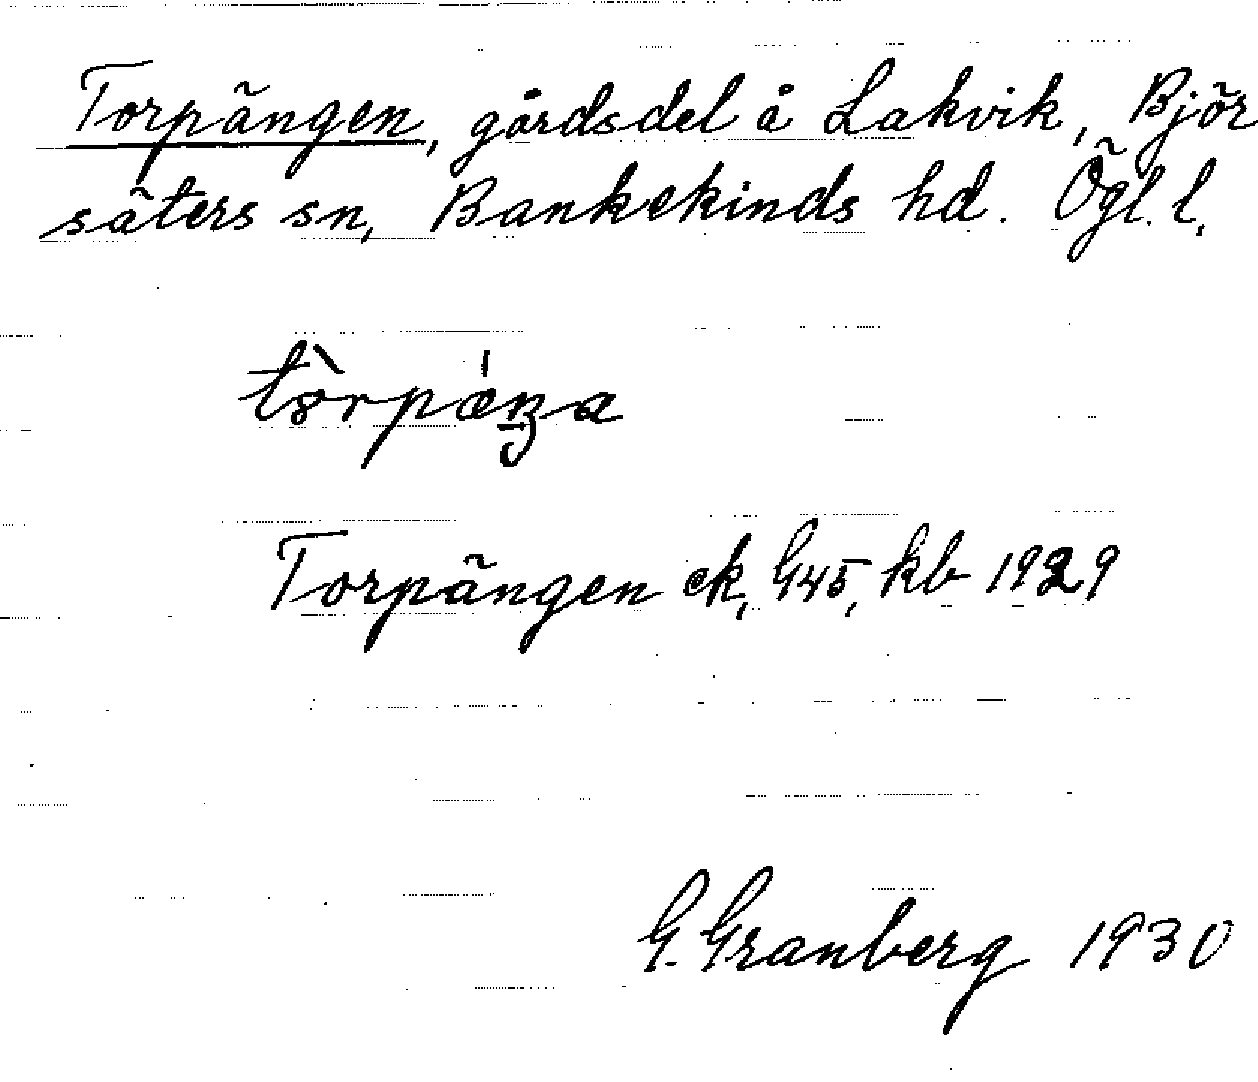 Torpängen, gårdsdel å Lakvik, Björ
säters sn, Bankekinds hd. Ögl. l.
Torpängen ek, G45, kb 1929
G. Granberg 1930